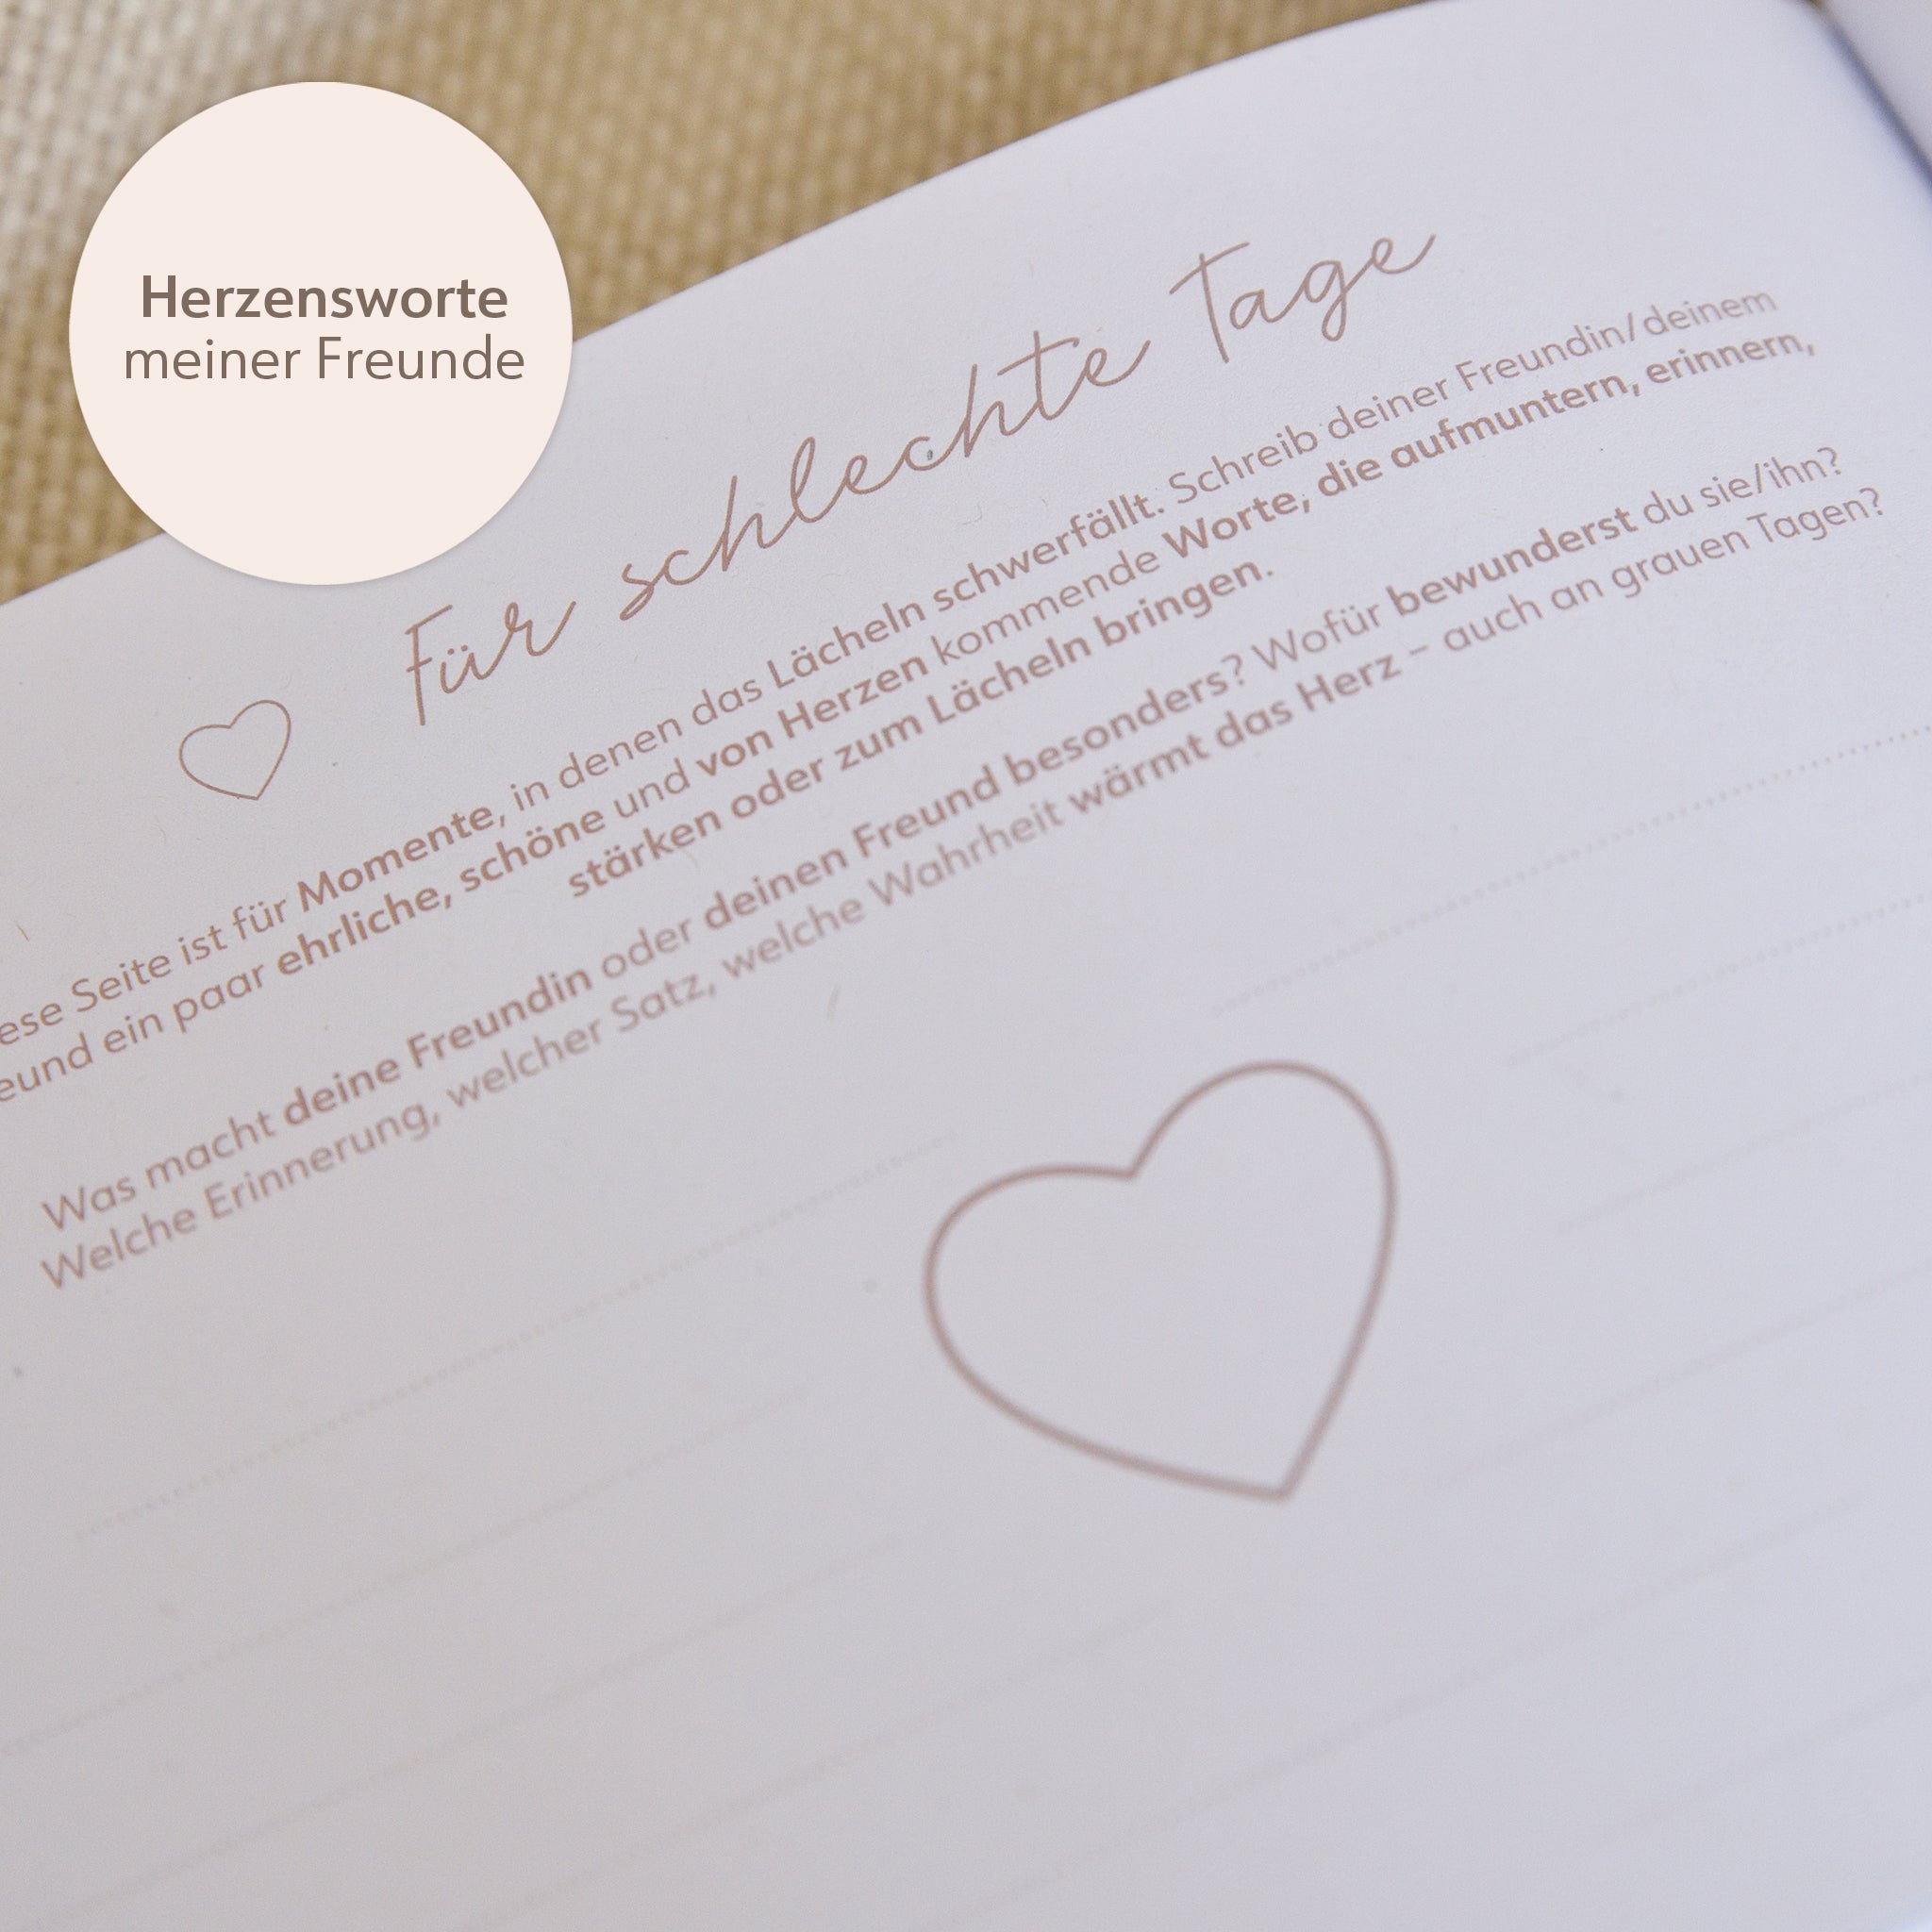 Herzensworte
meiner Freunde
Für schlechte Tage
ese Seite ist für Momente, in denen das Lächeln schwerfällt. Schreib deiner Freundin/deinem
eund ein paar ehrliche, schöne und von Herzen kommende Worte, die aufmuntern, erinnern,
stärken oder zum Lächeln bringen.
Was macht deine Freundin oder deinen Freund besonders? Wofür bewunderst du sie/ihn?
Welche Erinnerung, welcher Satz, welche Wahrheit wärmt das Herz – auch an grauen Tagen?